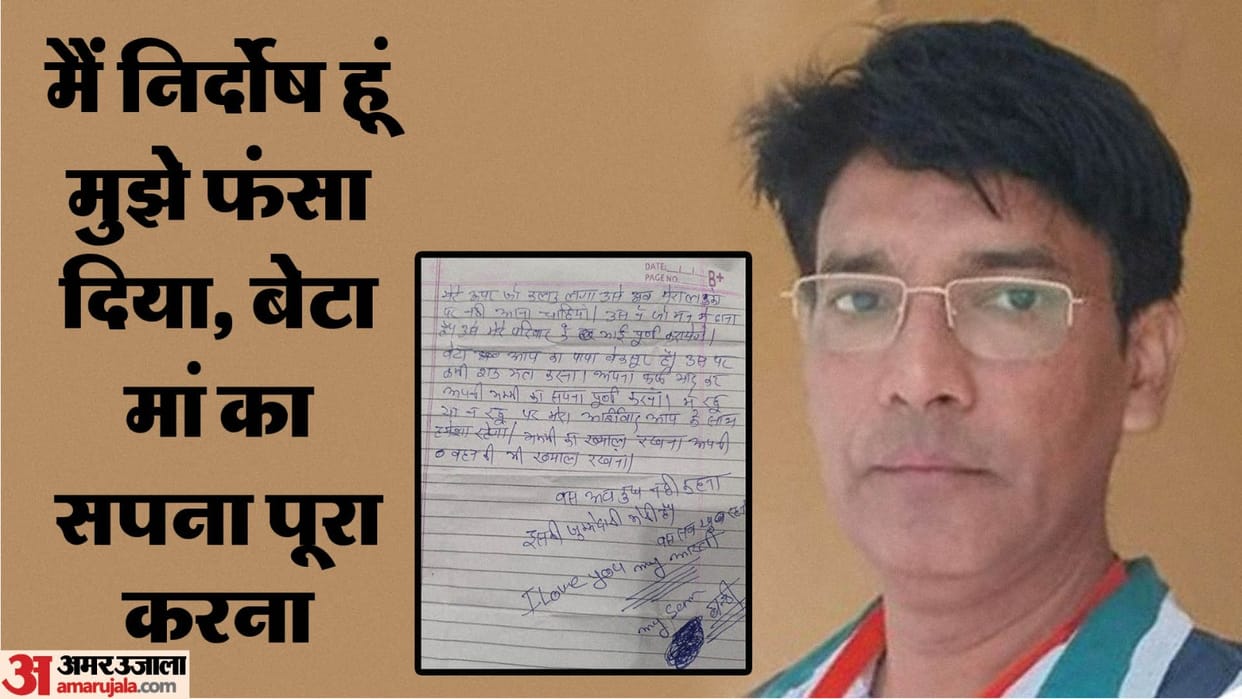 मैं निर्दोष हूं
मुझे फंसा
दिया, बेटा
मां का
सपना पूरा
करना
DATE:
PAGE NO.
B+
मेरे ऊपर जो लगा उसे अब मेरा
पर नही आना चाहिये। उस ने जो मन में
उसे मेरे परिवार के भाई पूर्ण करायेगे।
बेटा आप का पापा बेकसूर है। उस पर
कभी शक मत करना। अपना कर
अपनी मम्मी का सपना पूर्ण करना। मैं रहू
या न रहू पर मेरा आर्शिवाद आप के साथ
हमेशा रहेगा। मम्मी का ख्याल रखना अपनी
बहन की भी ख्याल रखना।
बस अब कुछ नही कहना
इसकी जुम्मेदारी मेरी है।
बस सब खुश रहना
I Love you my
my
अ अमर उजाला
amarujala.com